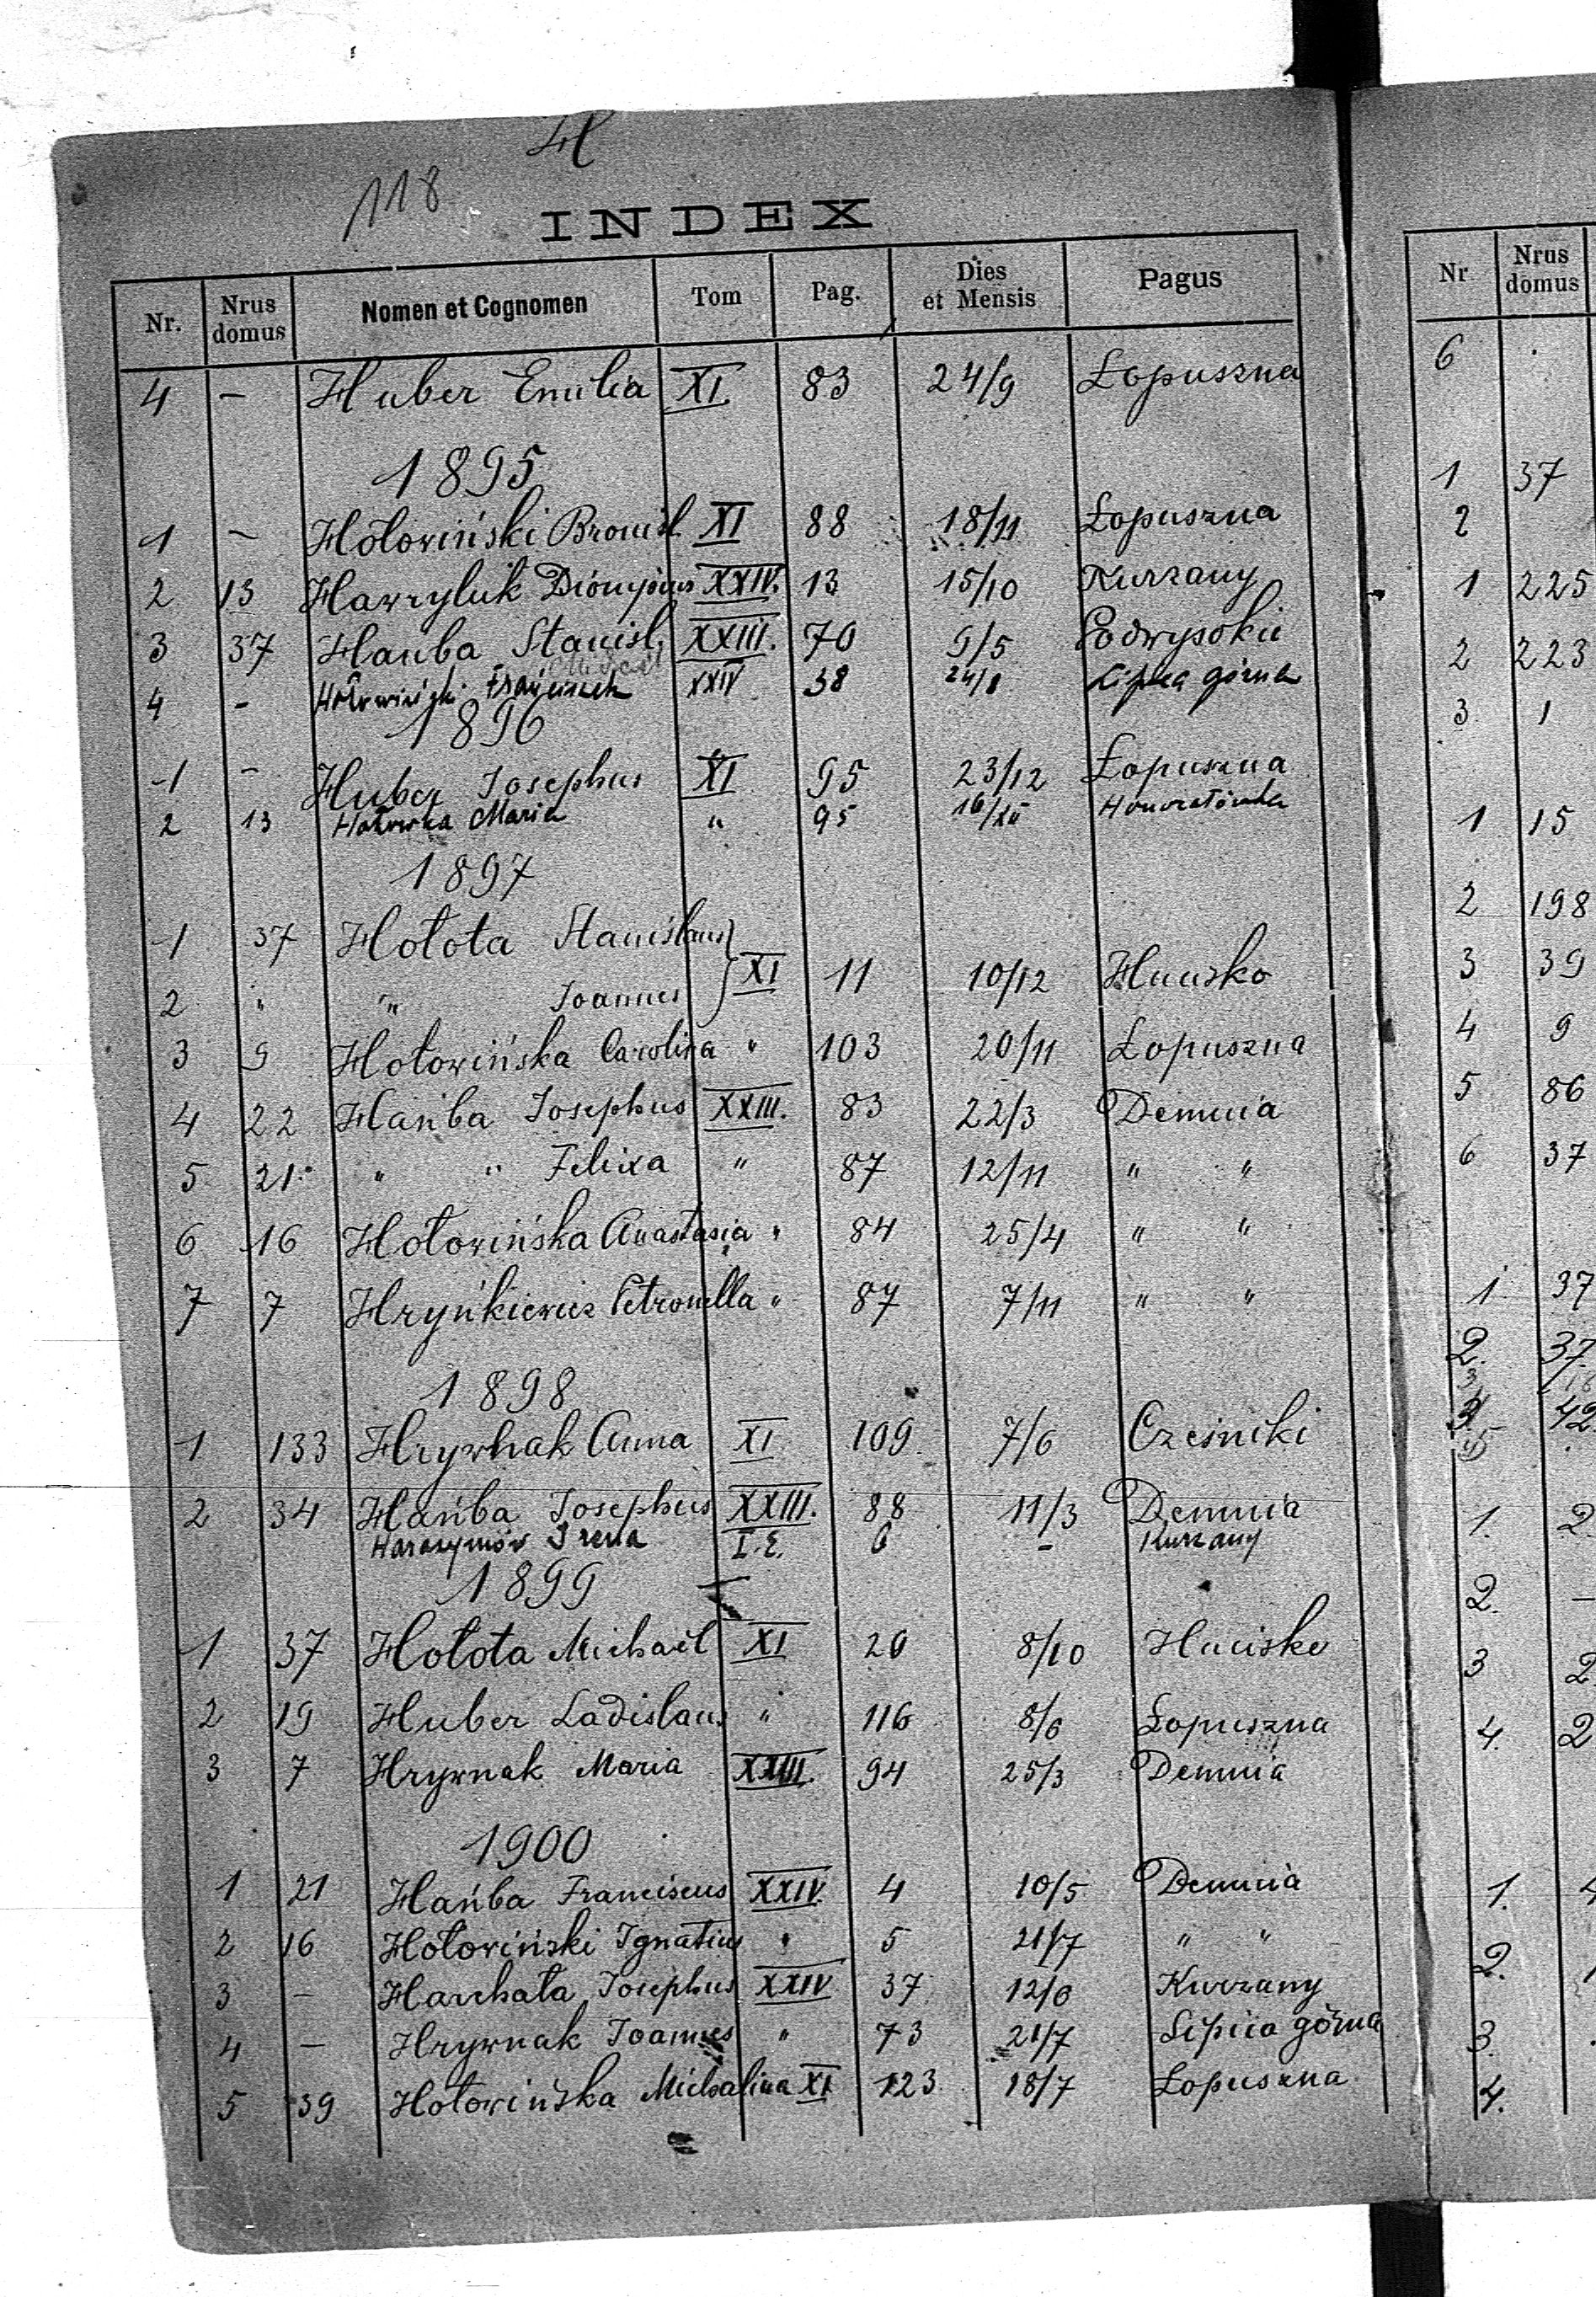 H
118
INDEX
Nr. Nrus domus Nomen et Cognomen Tom Pag. Dies et Mensis Pagus
4 – Huber Emilia XI. 83 24/9 Łopuszna
1895
1 – Hołowiński Bronisł. XI 88 18/11 Łopuszna
2 13 Hawryluk Dionysius XXIV. 13 15/10 Kurzany
3 37 Hańba Stanisł. XXIII. 70 9/5 Podwysokie
4 – Hołowiński XXIV 38 24/8 Lipica górna
1896
1 – Huber Josephus XI 95 23/12 Łopuszna
2 13 Hołowka Maria " 95 Honoratówka
1897
1 37 Hołota Stanislaus
2 " " Joannes } XI 11 10/12 Hucisko
3 9 Hołowińska Carolina " 103 20/11 Łopuszna
4 22 Hańba Josephus XXIII. 83 22/3 Demnia
5 21 " " Felixa " 87 12/11 " "
6 16 Hołowińska Anastasia " 84 25/4 " "
7 7 Hryńkiewicz Petronella " 87 7/11 " "
1898
1 133 Hrywnak Anna XI 109 7/6 Cześniki
2 34 Hańba Josephus XXIII. 88 11/3 Demnia
Harasymów Irena I.E. 6 – Kurzany
1899
1 37 Hołota Michaël XI 20 8/10 Hucisko
2 19 Huber Ladislaus " 116 8/6 Łopuszna
3 7 Hrywnak Maria XXIII. 94 25/3 Demnia
1900
1 21 Hańba Franciscus XXIV. 4 10/5 Demnia
2 16 Hołowiński Ignatius " 5 21/7 " "
3 – Harchała Josephus XXIV 37 12/6 Kurzany
4 – Hrywnak Joannes " 73 21/7 Lipica górna
5 39 Hołowińska Michalina XI 123 18/7 Łopuszna
Nr Nrus domus
6
1 37
2
1 225
2 223
3 1
1 15
2 198
3 39
4 9
5 86
6 37
1 37
2. 37
42
1. 2
2. –
3 2
4. 2
1.
2.
3.
4.